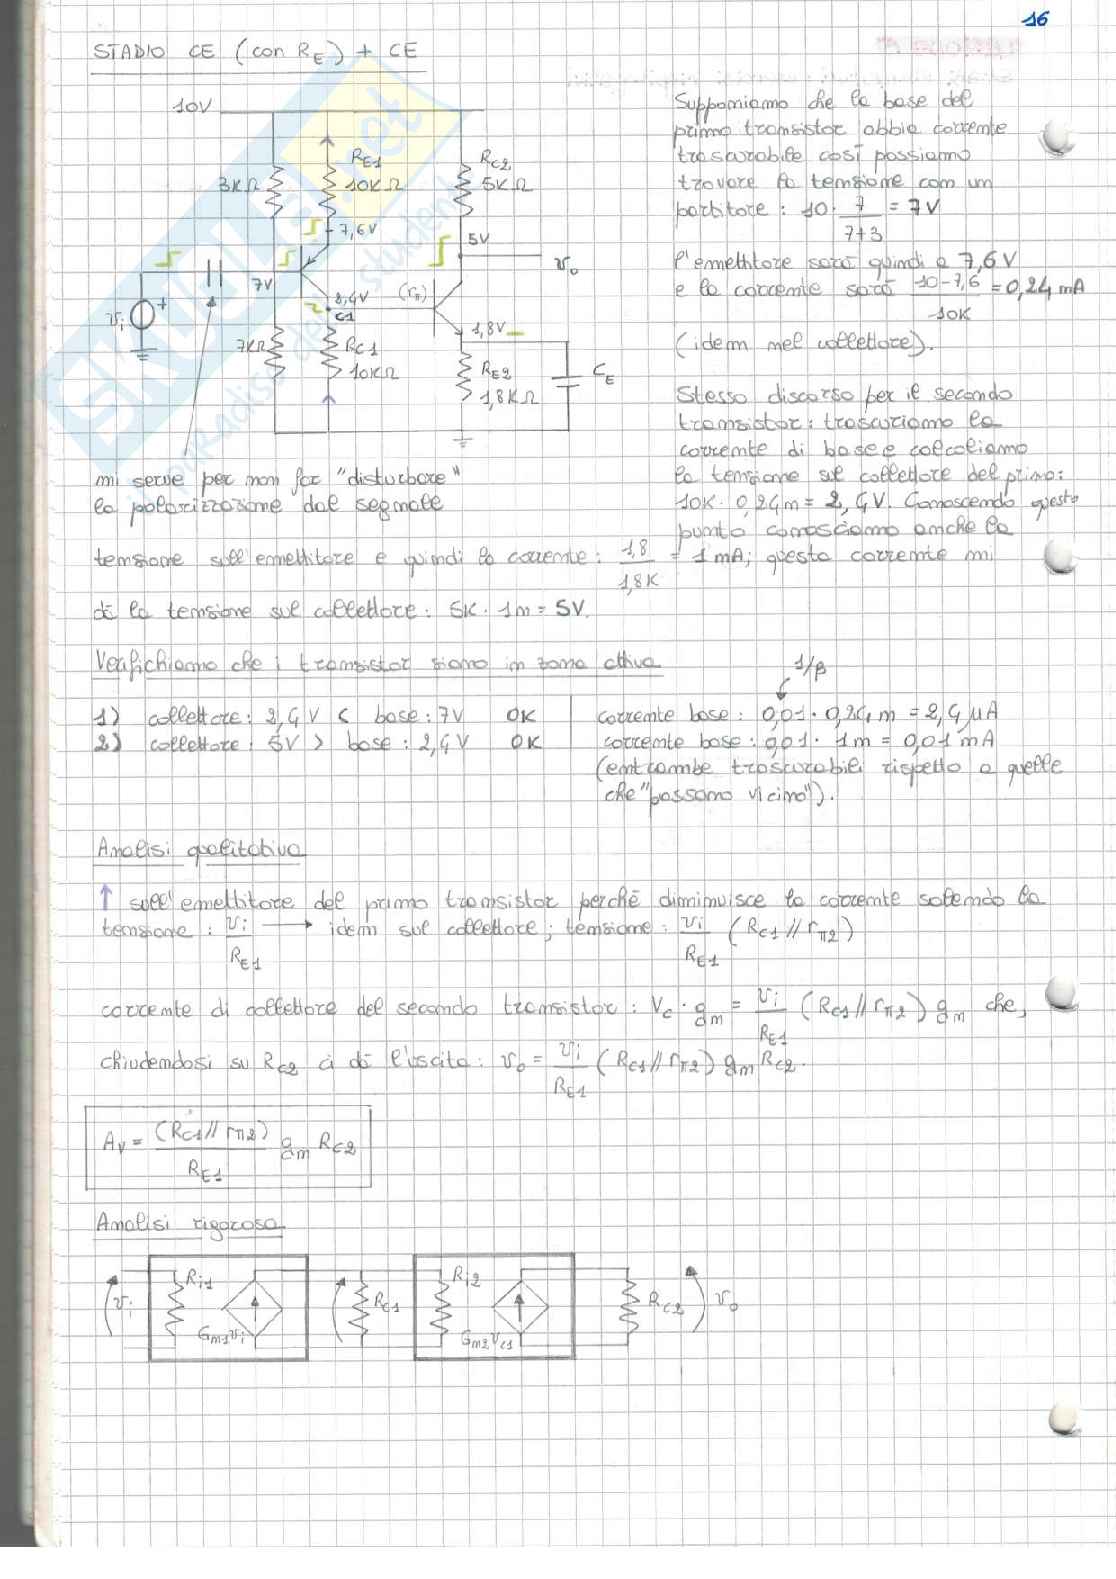 16
STADIO CE (con RE) + CE
10V
3KΩ
RE1
10KΩ
RC2
5KΩ
7,6V
5V
vo
7V
2,4V
(rπ)
C1
vi
+
1,8V
7KΩ
RC1
10KΩ
RE2
1,8KΩ
CE
Supponiamo che la base del
primo transistor abbia corrente
trascurabile così possiamo
trovare la tensione con un
partitore: 10· 7/7+3 = 7V
l'emettitore sarà quindi a 7,6V
e la corrente sarà 10-7,6/10K = 0,24mA
(idem nel collettore).
Stesso discorso per il secondo
transistor: trascuriamo la
corrente di base e calcoliamo
la tensione sul collettore del primo:
10K· 0,24m = 2,4V. Conoscendo questo
punto conosciamo anche la
mi serve per non far "disturbare"
la polarizzazione dal segnale
tensione sull'emettitore e quindi la corrente: 1,8/1,8K = 1mA; questa corrente mi
dà la tensione sul collettore: 5K· 1m = 5V.
Verifichiamo che i transistor siano in zona attiva
1/β
1) collettore: 2,4V < base: 7V OK
corrente base: 0,01· 0,24m = 2,4μA
2) collettore: 5V > base: 2,4V OK
corrente base: 0,01· 1m = 0,01mA
(entrambe trascurabili rispetto a quelle
che "passano vicino").
Analisi qualitativa
↑ sull'emettitore del primo transistor perché diminuisce la corrente salendo la
tensione: vi/RE1 → idem sul collettore; tensione: vi/RE1 (RC1//rπ2)
corrente di collettore del secondo transistor: Vc·gm = vi/RE1 (RC1//rπ2) gm che,
chiudendosi su RC2 ci dà l'uscita: vo = vi/RE1 (RC1//rπ2) gm RC2.
Av = (RC1//rπ2)/RE1 gm RC2
Analisi rigorosa
vi
Ri1
Gm1vi
RC1
Ri2
Gm2vC1
RC2
vo